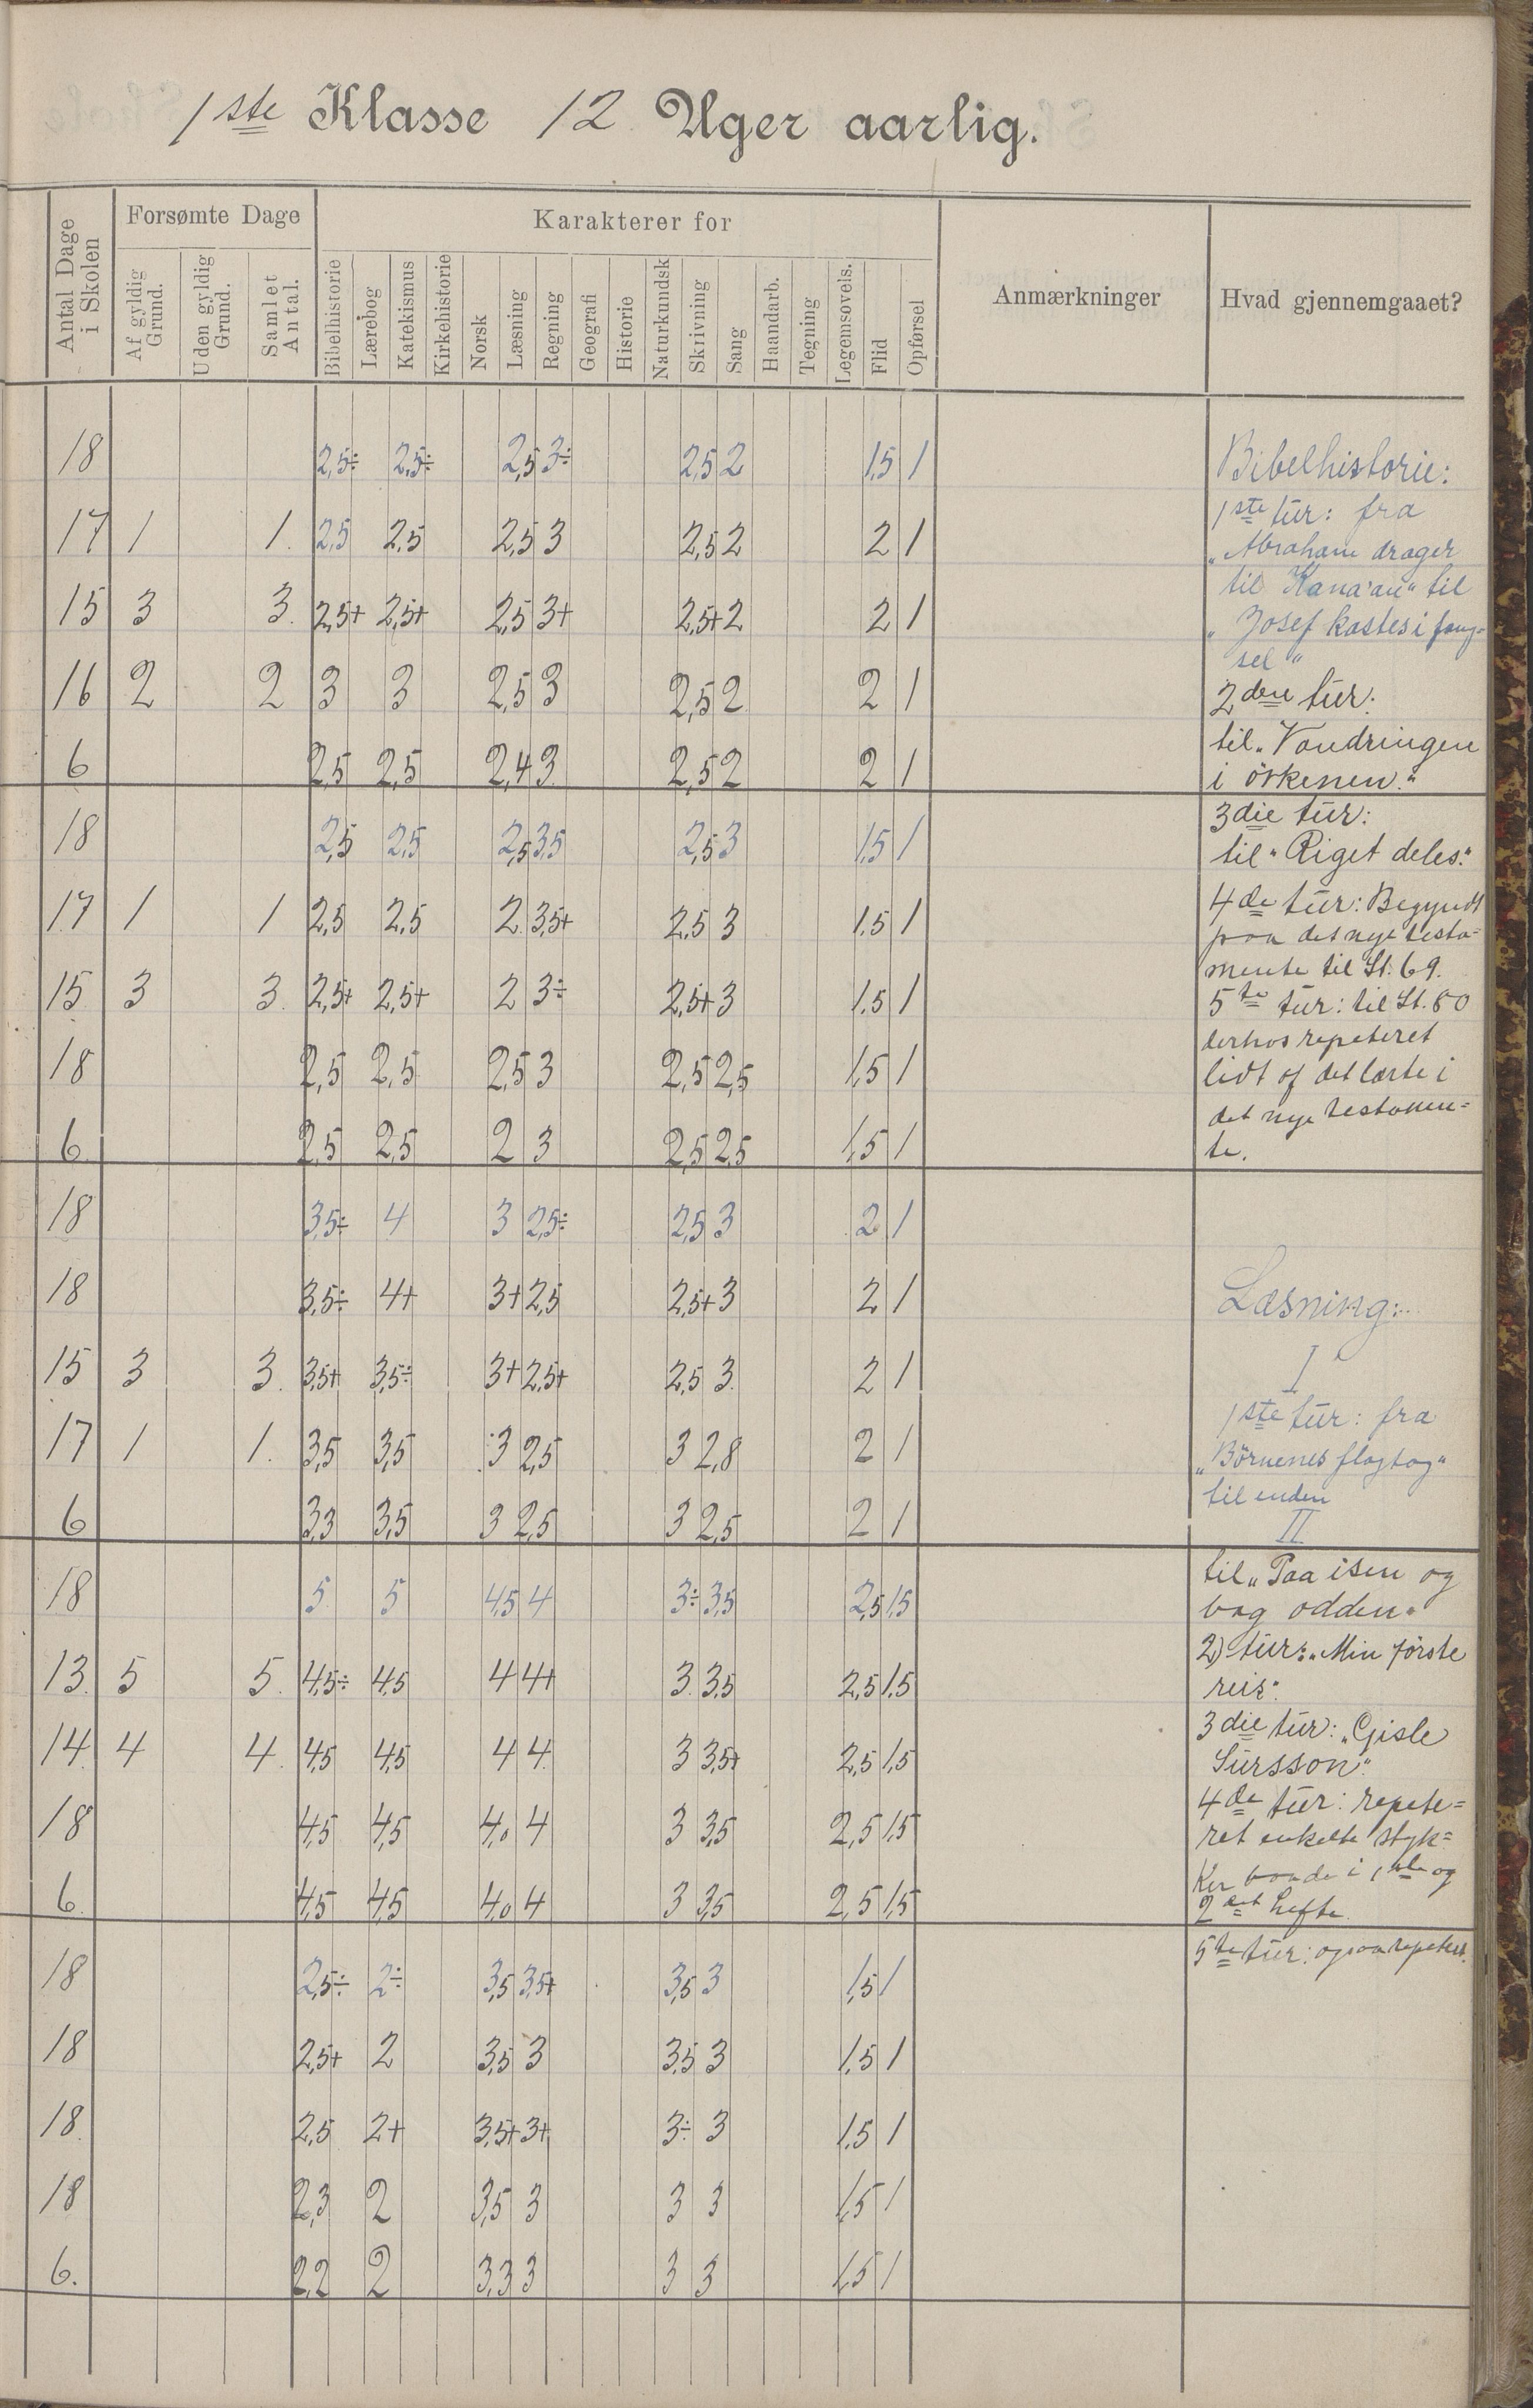 1ste Klasse 12 Uger aarlig.
Antal Dage i Skolen
Forsømte Dage
Af gyldig Grund.
Uden gyldig Grund.
Samlet Antal.
Karakterer for
Bibelhistorie
Lærebog
Katekismus
Kirkehistorie
Norsk
Læsning
Regning
Geografi
Historie
Naturkundsk
Skrivning
Sang
Haandarb.
Tegning
Legemsøvels.
Flid
Opførsel
Anmærkninger
Hvad gjennemgaaet?
18 2,5÷ 2,5÷ 2,5 3÷ 2,5 2 1,5 1
17 1 1. 2,5 2,5 2,5 3 2,5 2 2 1
15 3 3. 2,5+ 2,5+ 2,5 3+ 2,5+ 2 2 1
16 2 2 3 3 2,5 3 2,5 2 2 1
6 2,5 2,5 2,4 3 2,5 2 2 1
18 2,5 2,5 2,5 3,5 2,5 3 1,5 1
17 1 1 2,5 2,5 2 3,5+ 2,5 3 1,5 1
15 3 3. 2,5+ 2,5+ 2 3÷ 2,5+ 3 1,5 1
18 2,5 2,5 2,5 3 2,5 2,5 1,5 1
6 2,5 2,5 2 3 2,5 2,5 1,5 1
18 3,5÷ 4 3 2,5÷ 2,5 3 2 1
18 3,5÷ 4+ 3+ 2,5 2,5+ 3 2 1
15 3 3. 3,5+ 3,5÷ 3+ 2,5+ 2,5 3 2 1
17 1 1. 3,5 3,5 3 2,5 3 2,8 2 1
6 3,3 3,5 3 2,5 3 2,5 2 1
18 5 5 4,5 4 3÷ 3,5 2,5 1,5
13. 5 5. 4,5÷ 4,5 4 4+ 3 3,5 2,5 1,5
14 4 4. 4,5 4,5 4 4 3 3,5+ 2,5 1,5
18 4,5 4,5 4,0 4 3 3,5 2,5 1,5
6 4,5 4,5 4,0 4 3 3,5 2,5 1,5
18 2,5÷ 2÷ 3,5 3,5+ 3,5 3 1,5 1
18 2,5+ 2 3,5 3 3,5 3 1,5 1
18 2,5 2+ 3,5+ 3+ 3÷ 3 1,5 1
18 2,3 2 3,5 3 3 3 1,5 1
6. 2,2 2 3,3 3 3 3 1,5 1
Bibelhistorie:
1ste tur: fra
„Abraham drager
til Kana'an" til
„Josef kastes i fæng=
sel"
2den tur:
til „Vandringen
i örkenen."
3die tur:
til „Riget deles."
4de tur: Begyndt
paa det nye testa=
mente til St. 69.
5te tur: til St. 80
derhos repeteret
lidt af det lærte i
det nye testamen=
te.
Læsning:
I
1ste tur: fra
„Börnenes flagtog"
til enden
II
til „Paa isen og
bag odden"
2) tur: „Min förste
reis".
3die tur: „Gisle
Sursson".
4de tur: repete=
ret enkelte styk=
ker baade i 1ste og
2det hefte.
5te tur: ogsaa repeteret.